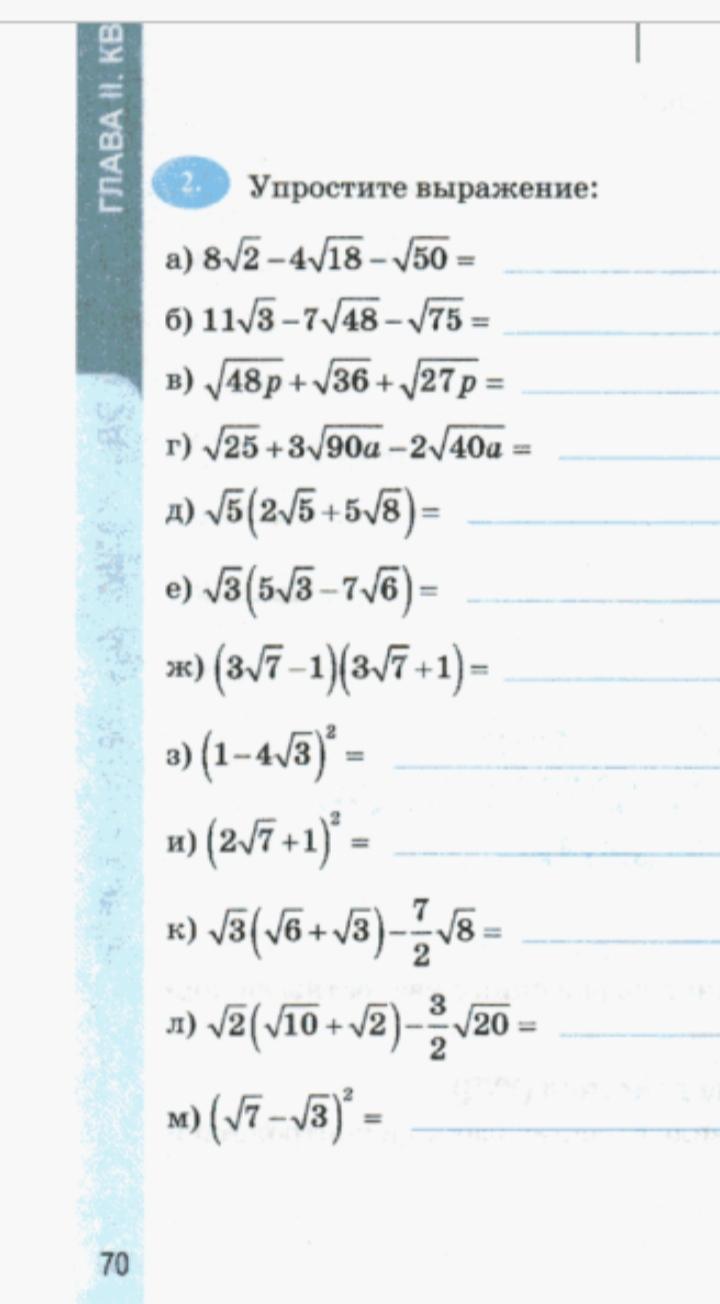 ГЛАВА II. КВ
2. Упростите выражение:
а) 8√2 − 4√18 − √50 =
б) 11√3 − 7√48 − √75 =
в) √48p + √36 + √27p =
г) √25 + 3√90a − 2√40a =
д) √5(2√5 + 5√8) =
е) √3(5√3 − 7√6) =
ж) (3√7 − 1)(3√7 + 1) =
з) (1 − 4√3)² =
и) (2√7 + 1)² =
к) √3(√6 + √3) − 7/2 √8 =
л) √2(√10 + √2) − 3/2 √20 =
м) (√7 − √3)² =
70